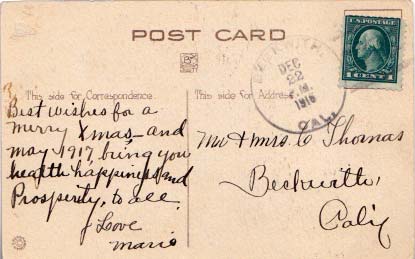 POST CARD
This side for Correspondence
Best wishes for a
merry Xmas and
may 1917, bring you
health happiness and
Prosperity, to all.
Love
Marie
This side for Address
BECKWITH
DEC
22
P.M.
1916
CAL.
U.S. POSTAGE
1 CENT 1
Mr & Mrs. C Thomas
Beckwith,
Calif